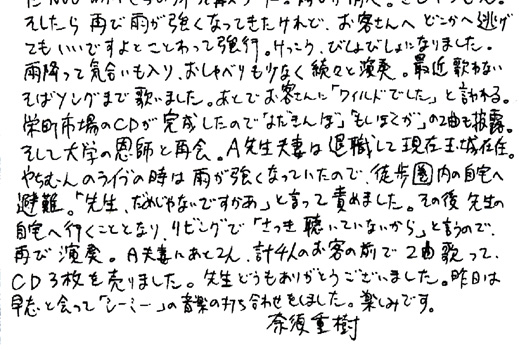 そしたら再び雨が強くなってきたけれど、お客さんへどこかへ逃げ
てもいいですよとことわって強行。けっこう、びしょびしょになりました。
雨降って気合いも入り、おしゃべりも少なく続々と演奏。最近歌わない
そばソングまで歌いました。あとでお客さんに「ワイルドでした」と言われる。
栄町市場のCDが完成したので「なだそんぼ」「もしほてが」の2曲も披露。
そして大学の恩師と再会。A先生夫妻は退職して現在玉城在住。
やちむんのライヴの時は雨が強くなっていたので、徒歩圏内の自宅へ
避難。「先生、だめじゃないですかあ」と言って責めました。その後先生の
自宅へ行くこととなり、リビングで「さっき聴いていないから」と言うので、
再び演奏。A夫妻にあと2人、計4人のお客の前で2曲歌って、
CD3枚を売りました。先生どうもありがとうございました。昨日は
早志と会って「シーミー」の音楽の打ち合わせをしました。楽しみです。
奈須重樹